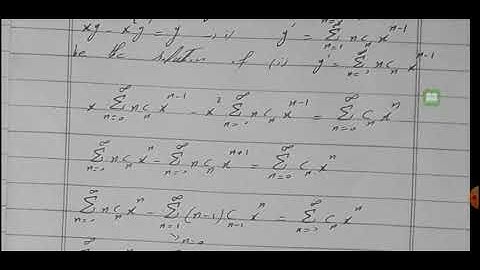 xy' - x²y' = y y' = ∑_{n=1}^∞ n c_n x^{n-1}
be the solution of (i) y' = ∑^∞ n c_n x^{n-1}
x ∑_{n=0}^∞ n c_n x^{n-1} - x² ∑^∞ n c_n x^{n-1} = ∑_{n=0}^∞ c_n x^n
∑_{n=0}^∞ n c_n x^n - ∑_{n=0}^∞ n c_n x^{n+1} = ∑_{n=0}^∞ c_n x^n
∑_{n=0}^∞ n c_n x^n - ∑_{n=1}^∞ (n-1) c_{n-1} x^n = ∑^∞ c_n x^n
n=0